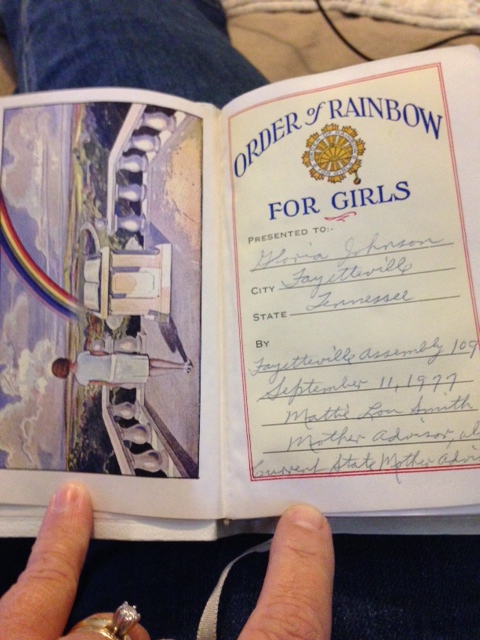 ORDER of RAINBOW
FOR GIRLS
PRESENTED TO:-
Gloria Johnson
CITY Fayetteville
STATE Tennessee
BY
Fayetteville Assembly 109
September 11, 1977
Mattie Lou Smith
Mother Advisor,
Current State Mother